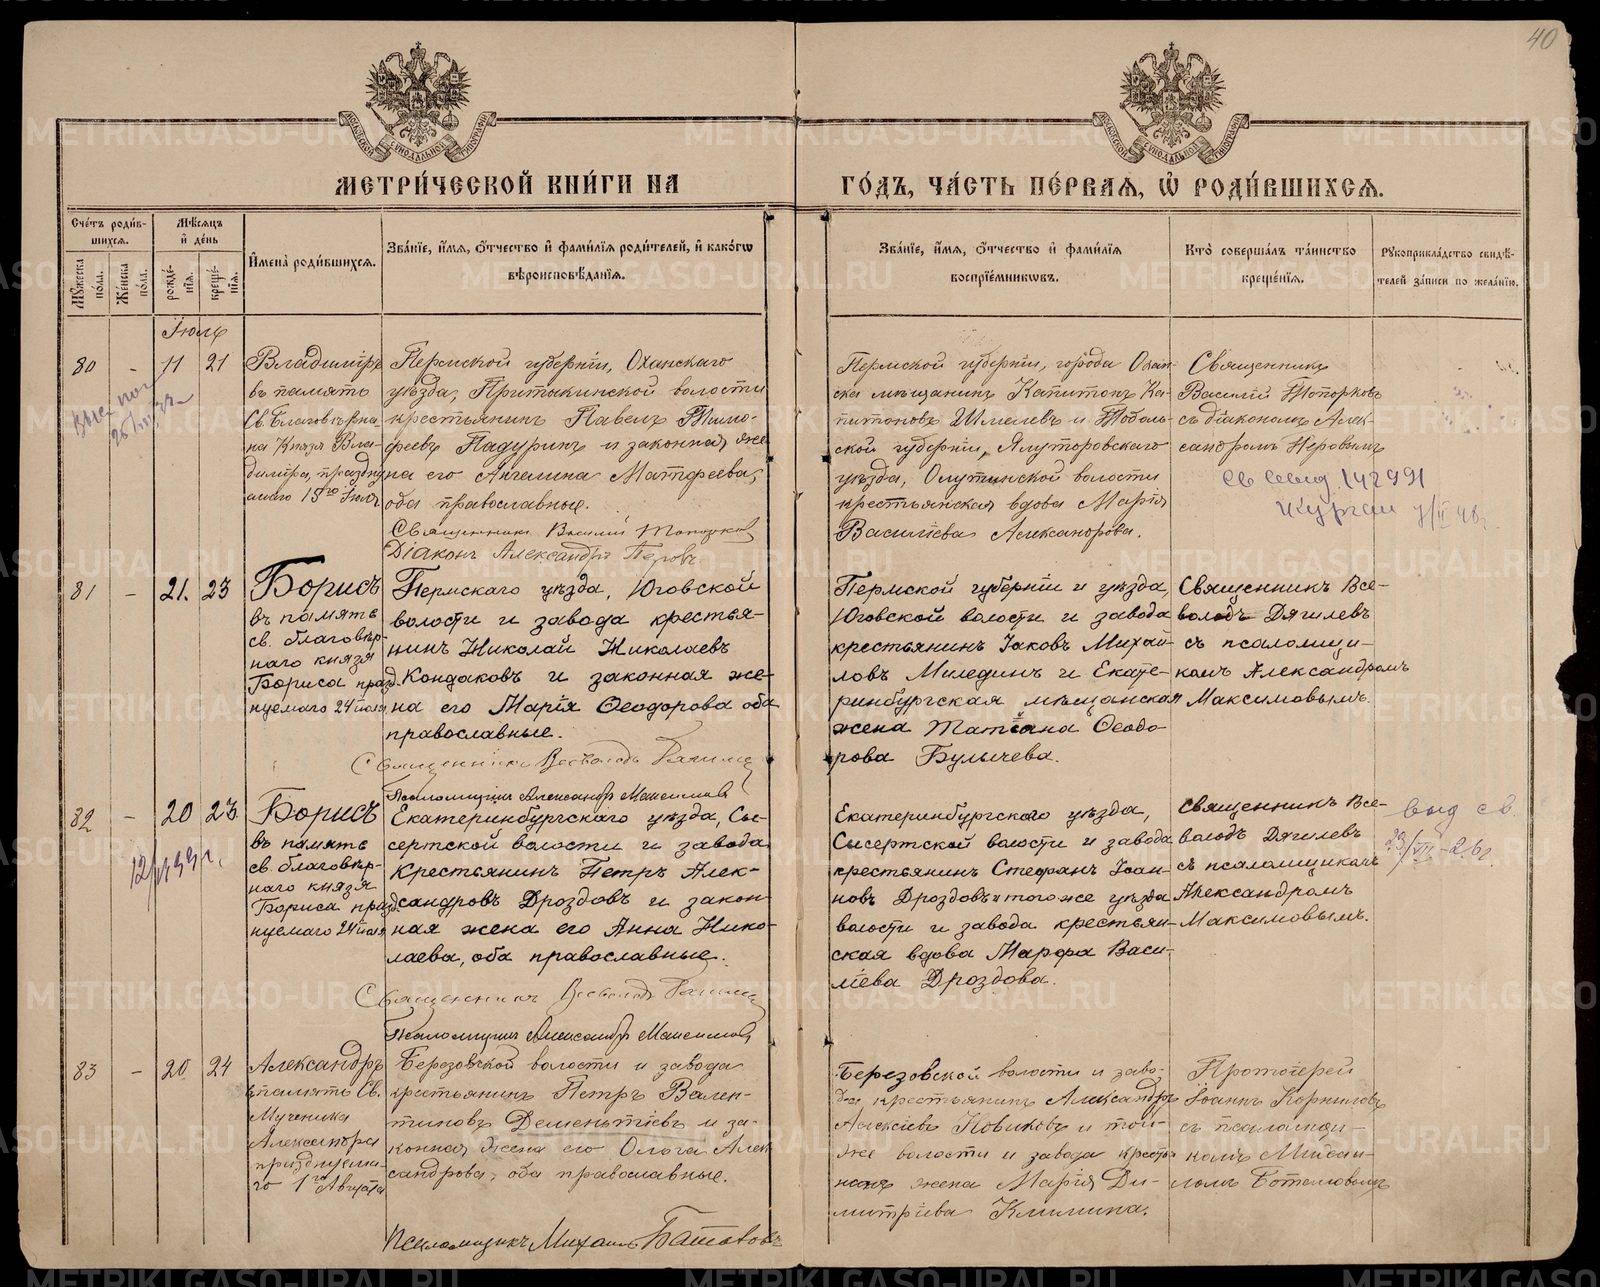 40
МЕТРИ́ЧЕСКОЙ КНИ́ГИ НА
ГО́ДЪ, ЧА́СТЬ ПЕ́РВАЯ, Ѡ҆ РОДИ́ВШИХСЯ.
Сче́тъ роди́в-
шихся.
Мѣ́сяцъ
и҆ де́нь
Му́жеска по́ла.
Же́нска по́ла.
рожде́-
нїя.
креще́-
нїя.
И҆мена̀ роди́вшихся.
Зва́нїе, и҆́мя, ѻ҆́тчество и҆ фами́лїя роди́телей, и҆ како́гѡ
вѣроисповѣ́данїя.
Зва́нїе, и҆́мя, ѻ҆́тчество и҆ фами́лїя
воспрїе́мникѡвъ.
Кто̀ соверша́лъ та́инство
креще́нїя.
Рукоприкла́дство свидѣ́-
телей за́писи по жела́нїю.
Іюль
80 - 11 21
Владиміръ
въ память
Св. Благовѣрна
на Князя Вла-
димира, праздну
емаго 15го Іюля
Пермской губерніи, Оханскаго
уѣзда, Притыкинской волости
крестьянинъ Павелъ Тимо-
феевъ Падуринъ и законная же
на его Ангелина Матфеева,
оба православные.
Священникъ Василій Топорковъ
Діаконъ Александръ Перовъ
Пермской губерніи, города Охан-
ска мѣщанинъ Капитонъ Ка-
питоновъ Шмелевъ и Тоболь-
ской губерніи, Ялуторовскаго
уѣзда, Омутинской волости
крестьянская вдова Марія
Василіева Александрова.
Священникъ
Василій Топорковъ
съ діакономъ Алек-
сандромъ Перовымъ
142991
Курган
81 - 21. 23
Борисъ
въ память
св. благовѣр-
наго князя
Бориса празд-
нуемаго 24 іюля
Пермскаго уѣзда, Юговской
волости и завода крестья-
нинъ Николай Николаевъ
Кондаковъ и законная же-
на его Марія Ѳеодорова оба
православные.
Священникъ Всеволодъ Дягилевъ
Псаломщикъ Александръ Максимовъ
Пермской губерніи и уѣзда,
Юговской волости и завода
крестьянинъ Іаковъ Михай-
ловъ Мелединъ и Екате-
ринбургская мѣщанская
жена Татіана Ѳеодо-
рова Булычева.
Священникъ Все-
володъ Дягилевъ
съ псаломщи-
комъ Александромъ
Максимовымъ.
82 - 20 23
Борисъ
въ память
св. благовѣр-
наго князя
Бориса празд-
нуемаго 24 іюля
Екатеринбургскаго уѣзда, Сы-
сертской волости и завода
крестьянинъ Петръ Алек-
сандровъ Дроздовъ и закон-
ная жена его Анна Нико-
лаева, оба православные.
Священникъ Всеволодъ Дягилевъ
Псаломщикъ Александръ Максимовъ
Екатеринбургскаго уѣзда,
Сысертской волости и завода
крестьянинъ Стефанъ Іоан-
новъ Дроздовъ и того же уѣзда
волости и завода крестьян-
ская вдова Марфа Васи-
ліева Дроздова.
Священникъ Все-
володъ Дягилевъ
съ псаломщикомъ
Александромъ
Максимовымъ.
выд св.
23/VII-26г.
83 - 20 24
Александръ
въ память Св.
Мученика
Александра
празднуема-
го 1го Августа
Березовской волости и завода
крестьянинъ Петръ Вален-
тиновъ Дементіевъ и за-
конная жена его Ольга Алек
сандрова, оба православные.
Псаломщикъ Михаилъ
Березовской волости и заво-
да крестьянинъ Александръ
Алексіевъ Новиковъ и той-
же волости и завода крестья
ная жена Марія Ди-
митріева Климина.
Протоіерей
Іоаннъ Корниловъ
съ псаломщи-
комъ Михаи-
ломъ